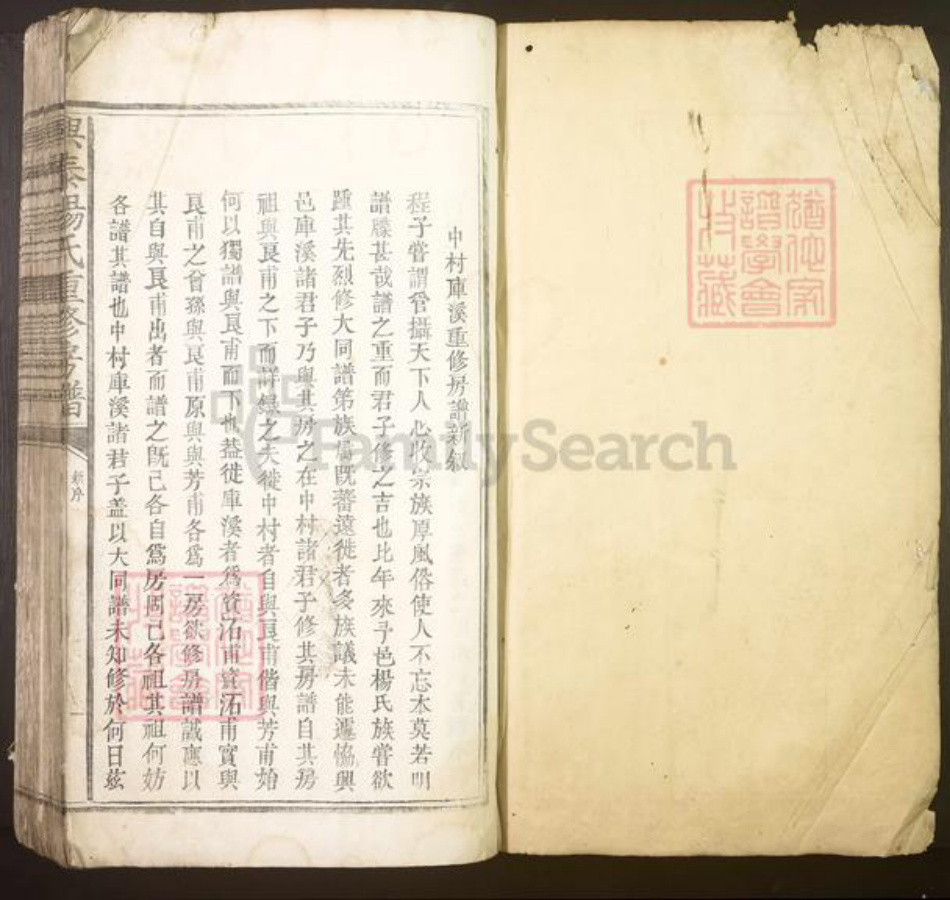 中村庫溪重修房譜新叙
程子嘗謂管攝天下人心收宗族厚風俗使人不忘本莫若明
譜牒甚哉譜之重而君子修之吉也比年來予邑楊氏族嘗欲
踵其先烈修大同譜第族屬既蕃遠徙者多族議未能遽恊興
邑庫溪諸君子乃與其房之在中村諸君子修其房譜自其房
祖與艮甫之下而詳錄之夫徙中村者自與艮甫偕與芳甫始
何以獨譜與艮甫而下也葢徙庫溪者爲資沰甫資沰甫實與
艮甫之曾孫與艮甫原與與芳甫各爲一房欲修房譜誠應以
其自與艮甫出者而譜之既已各自爲房固已各祖其祖何妨
各譜其譜也中村庫溪諸君子葢以大同譜未知修於何日茲
新序
一
楊氏重修房譜
猶他家
譜學會
收藏
猶他家
譜學會
收藏
FamilySearch